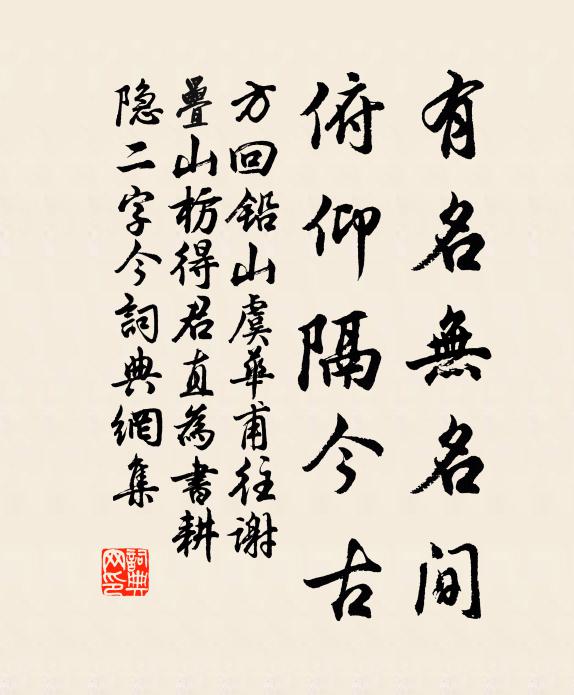 有名無名間
俯仰隔今古
方回鉛山虞華甫往謝
疊山枋得君直為書耕
隐二字今詞典網集
詞典网印